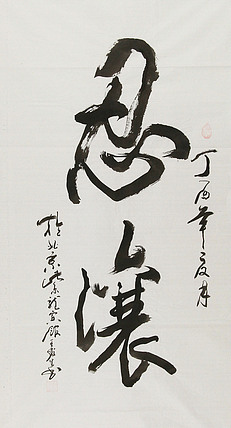 丁酉年夏月
忍讓
於北京紫